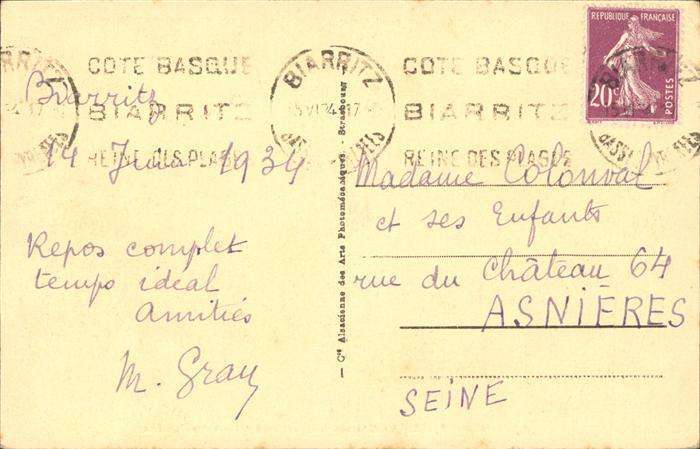 RÉPUBLIQUE FRANÇAISE
20c
POSTES
COTE BASQUE
BIARRITZ
REINE DES PLAGES
BIARRITZ
15 VI 34
BASSES PYRENEES
COTE BASQUE
BIARRITZ
REINE DES PLAGES
Biarritz
14 Juin 1934
Repos complet
temps idéal
Amitiés
M. Gray
— Cie Alsacienne des Arts Photomécaniques. - Strasbourg
Madame Colonval
et ses Enfants
rue du Château 64
ASNIÈRES
SEINE